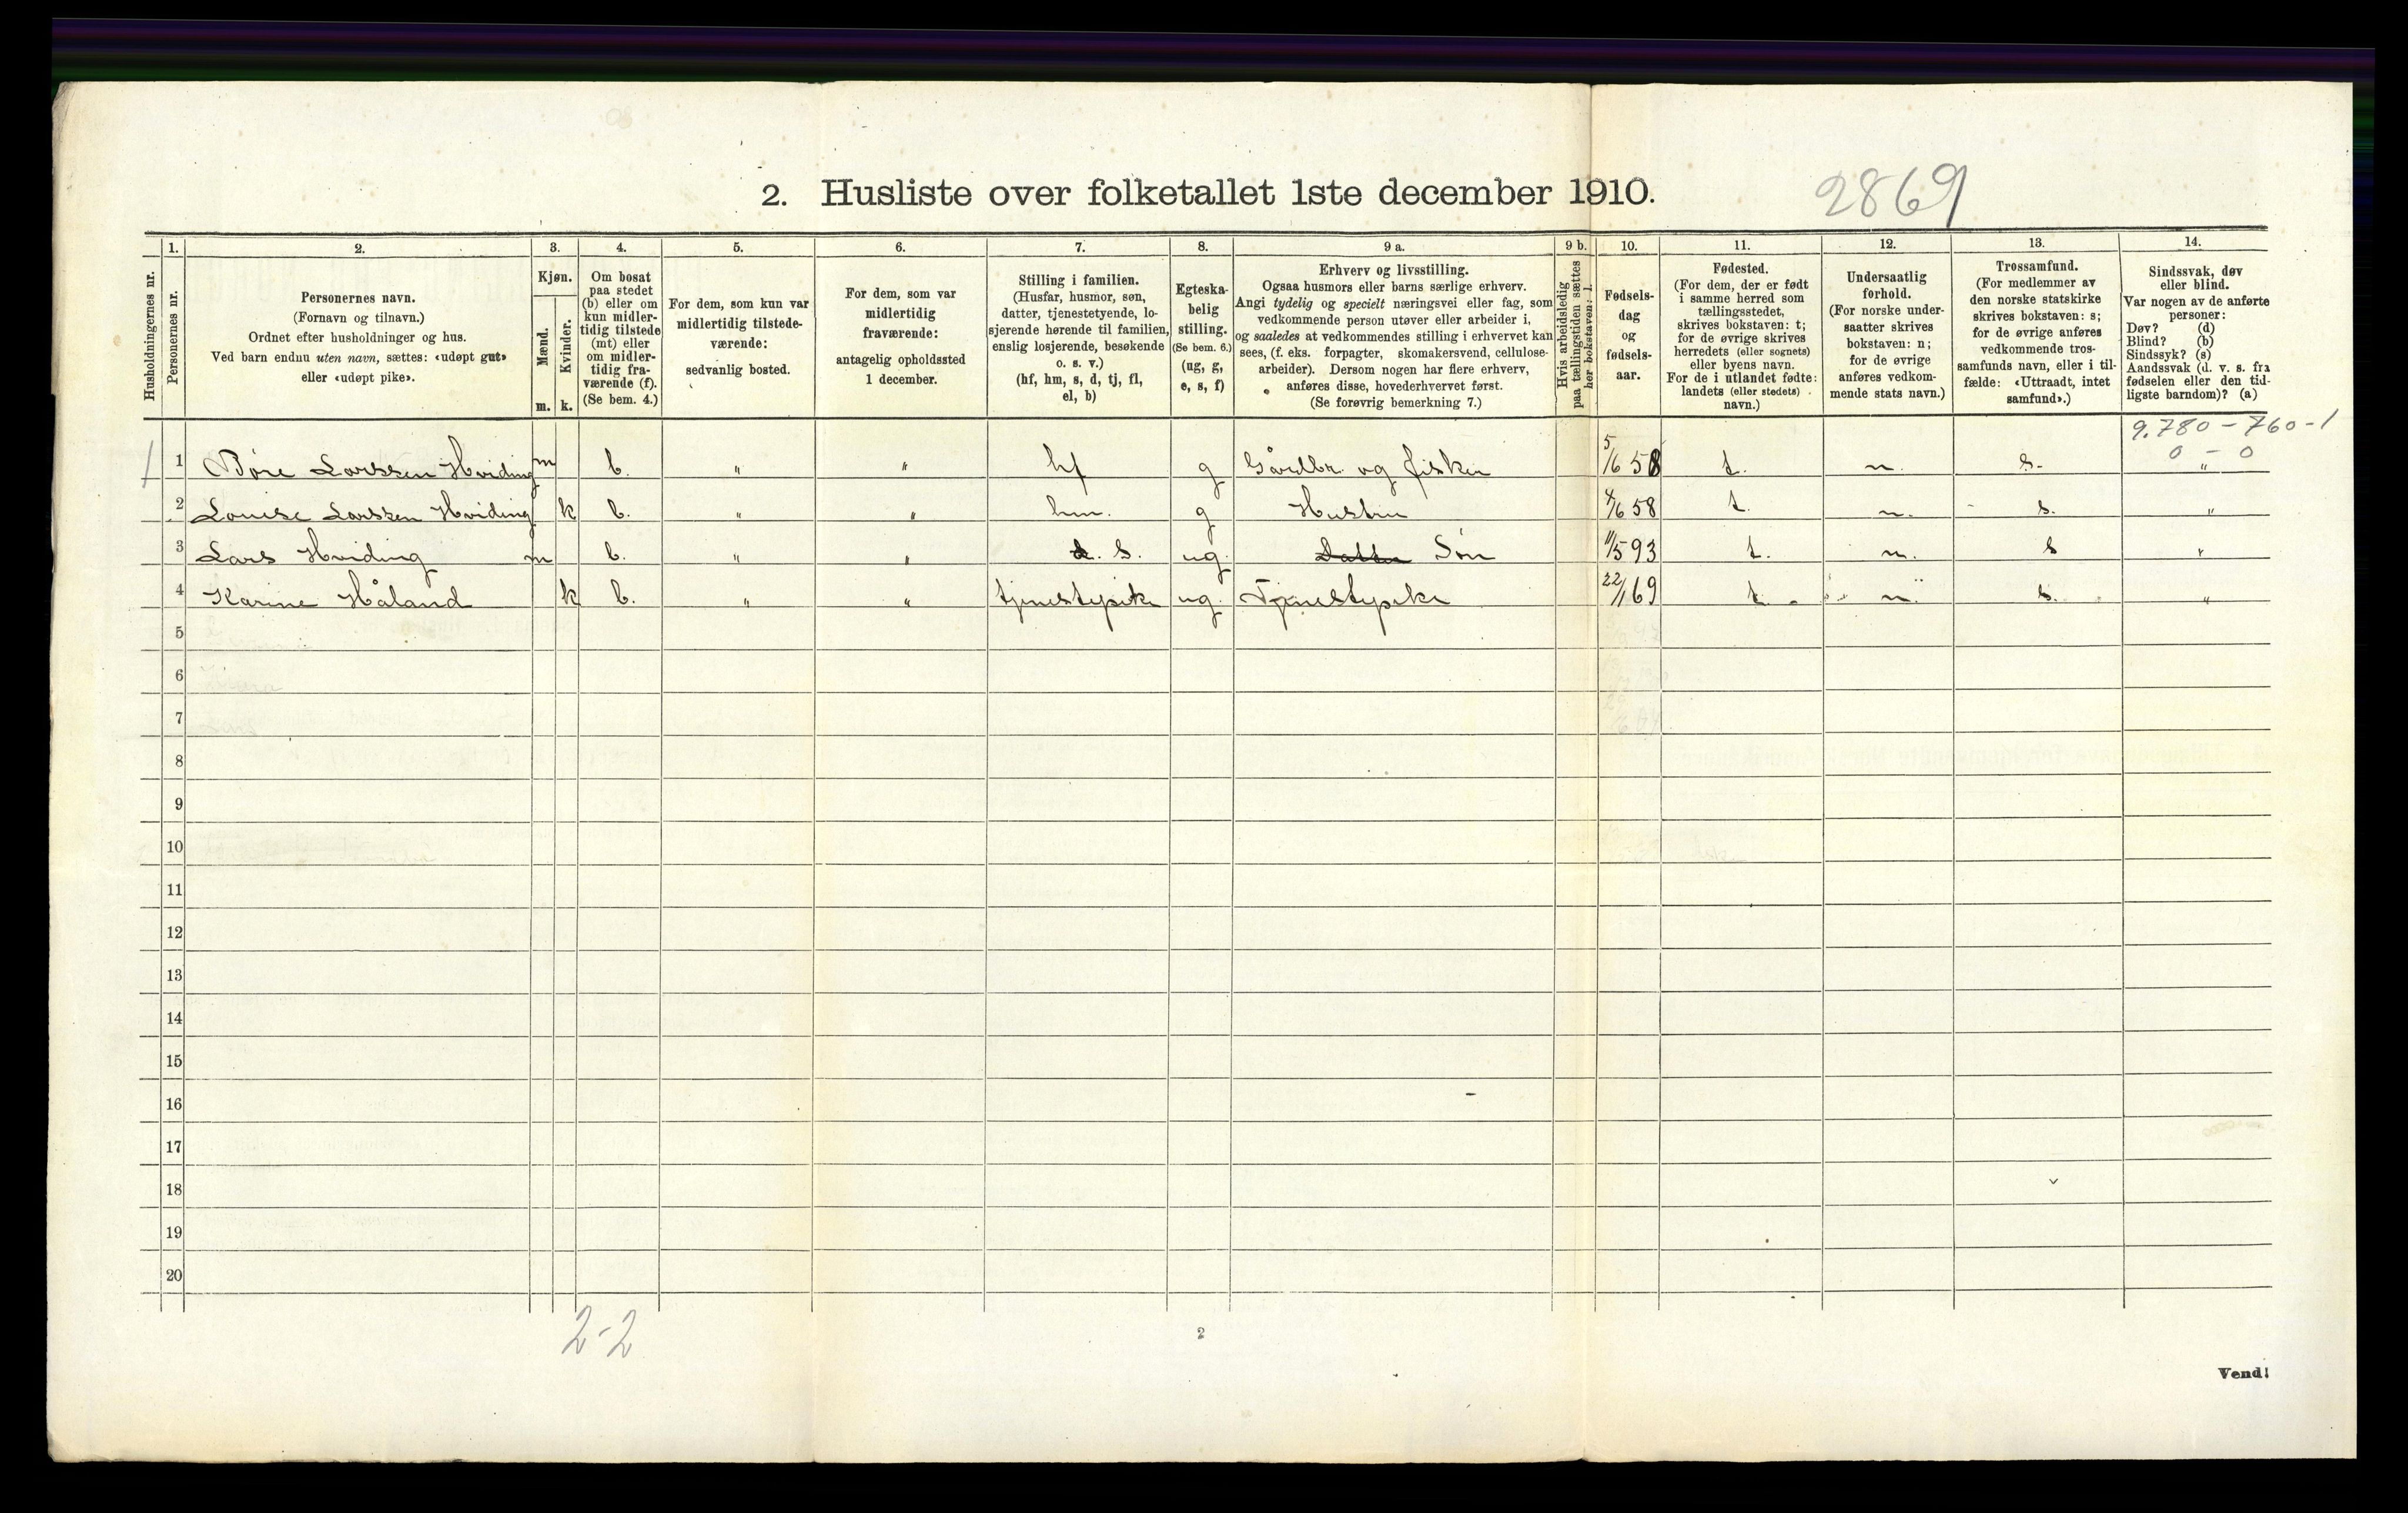 2. Husliste over folketallet 1ste december 1910.
2869
Husholdningernes nr.
1.
Personernes nr.
2.
Personernes navn.
(Fornavn og tilnavn.)
Ordnet efter husholdninger og hus.
Ved barn endnu uten navn, sættes: «udøpt gut»
eller «udøpt pike».
3.
Kjøn.
Mænd.
Kvinder.
m. k.
4.
Om bosat
paa stedet
(b) eller om
kun midler-
tidig tilstede
(mt) eller
om midler-
tidig fra-
værende (f).
(Se bem. 4.)
5.
For dem, som kun var
midlertidig tilstede-
værende:
sedvanlig bosted.
6.
For dem, som var
midlertidig
fraværende:
antagelig opholdssted
1 december.
7.
Stilling i familien.
(Husfar, husmor, søn,
datter, tjenestetyende, lo-
sjerende hørende til familien,
enslig losjerende, besøkende
o. s. v.)
(hf, hm, s, d, tj, fl,
el, b)
8.
Egteska-
belig
stilling.
(Se bem. 6.)
(ug, g,
e, s, f)
9 a.
Erhverv og livsstilling.
Ogsaa husmors eller barns særlige erhverv.
Angi tydelig og specielt næringsvei eller fag, som
vedkommende person utøver eller arbeider i,
og saaledes at vedkommendes stilling i erhvervet kan
sees, (f. eks. forpagter, skomakersvend, cellulose-
arbeider). Dersom nogen har flere erhverv,
anføres disse, hovederhvervet først.
(Se forøvrig bemerkning 7.)
9 b.
Hvis arbeidsledig
paa tællingstiden sættes
her bokstaven: l.
10.
Fødsels-
dag
og
fødsels-
aar.
11.
Fødested.
(For dem, der er født
i samme herred som
tællingsstedet,
skrives bokstaven: t;
for de øvrige skrives
herredets (eller sognets)
eller byens navn.
For de i utlandet fødte:
landets (eller stedets)
navn.)
12.
Undersaatlig
forhold.
(For norske under-
saatter skrives
bokstaven: n;
for de øvrige
anføres vedkom-
mende stats navn.)
13.
Trossamfund.
(For medlemmer av
den norske statskirke
skrives bokstaven: s;
for de øvrige anføres
vedkommende tros-
samfunds navn, eller i til-
fælde: «Uttraadt, intet
samfund».)
14.
Sindssvak, døv
eller blind.
Var nogen av de anførte
personer:
Døv? (d)
Blind? (b)
Sindssyk? (s)
Aandssvak (d. v. s. fra
fødselen eller den tid-
ligste barndom)? (a)
9.780 - 760 - 1
0 - 0
1 Børe Larssen Hviding m b. " " hf g Gårdbr. og fisker 5/6 58 t. n. s. "
2 Louise Larssen Hviding k b. " " hm. g Hustru 4/6 58 t. n. s. "
3 Lars Hviding m b. " " d. s. ug. Datter Søn 11/5 93 t. n. s "
4 Karine Håland k b. " " tjenestepike ug. Tjenestepike 22/1 69 t. n. s. "
5
6
7
8
9
10
11
12
13
14
15
16
17
18
19
20
2-2
2
Vend!